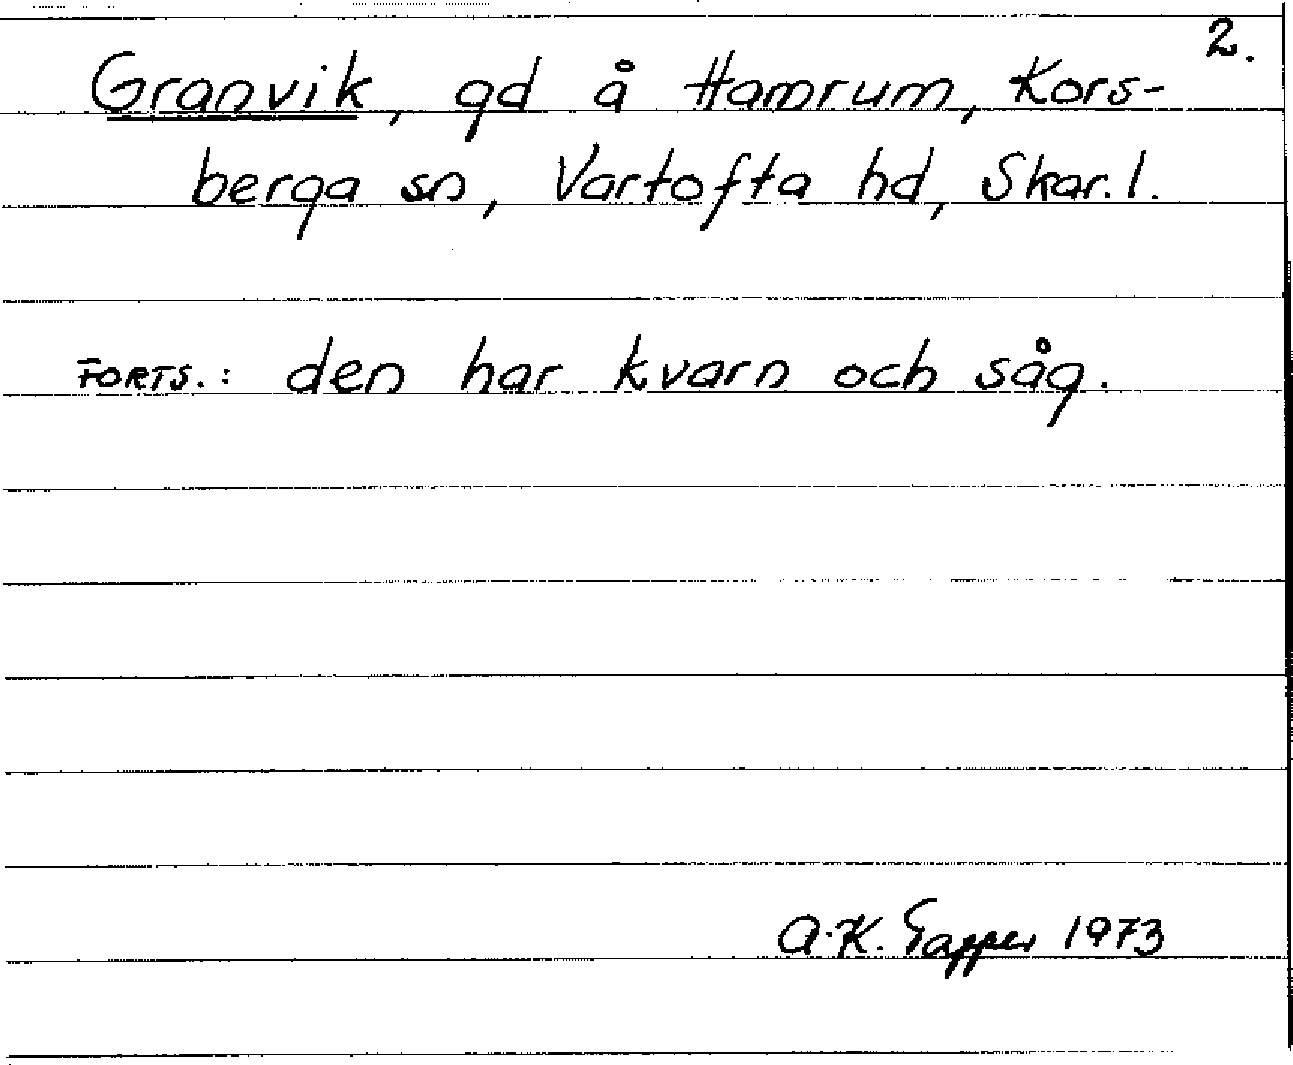 2.
Granvik, gd å Hamrum, Kors-
berga sn, Vartofta hd, Skar. l.
FORTS.: den har kvarn och såg.
A-K. Tapper 1973